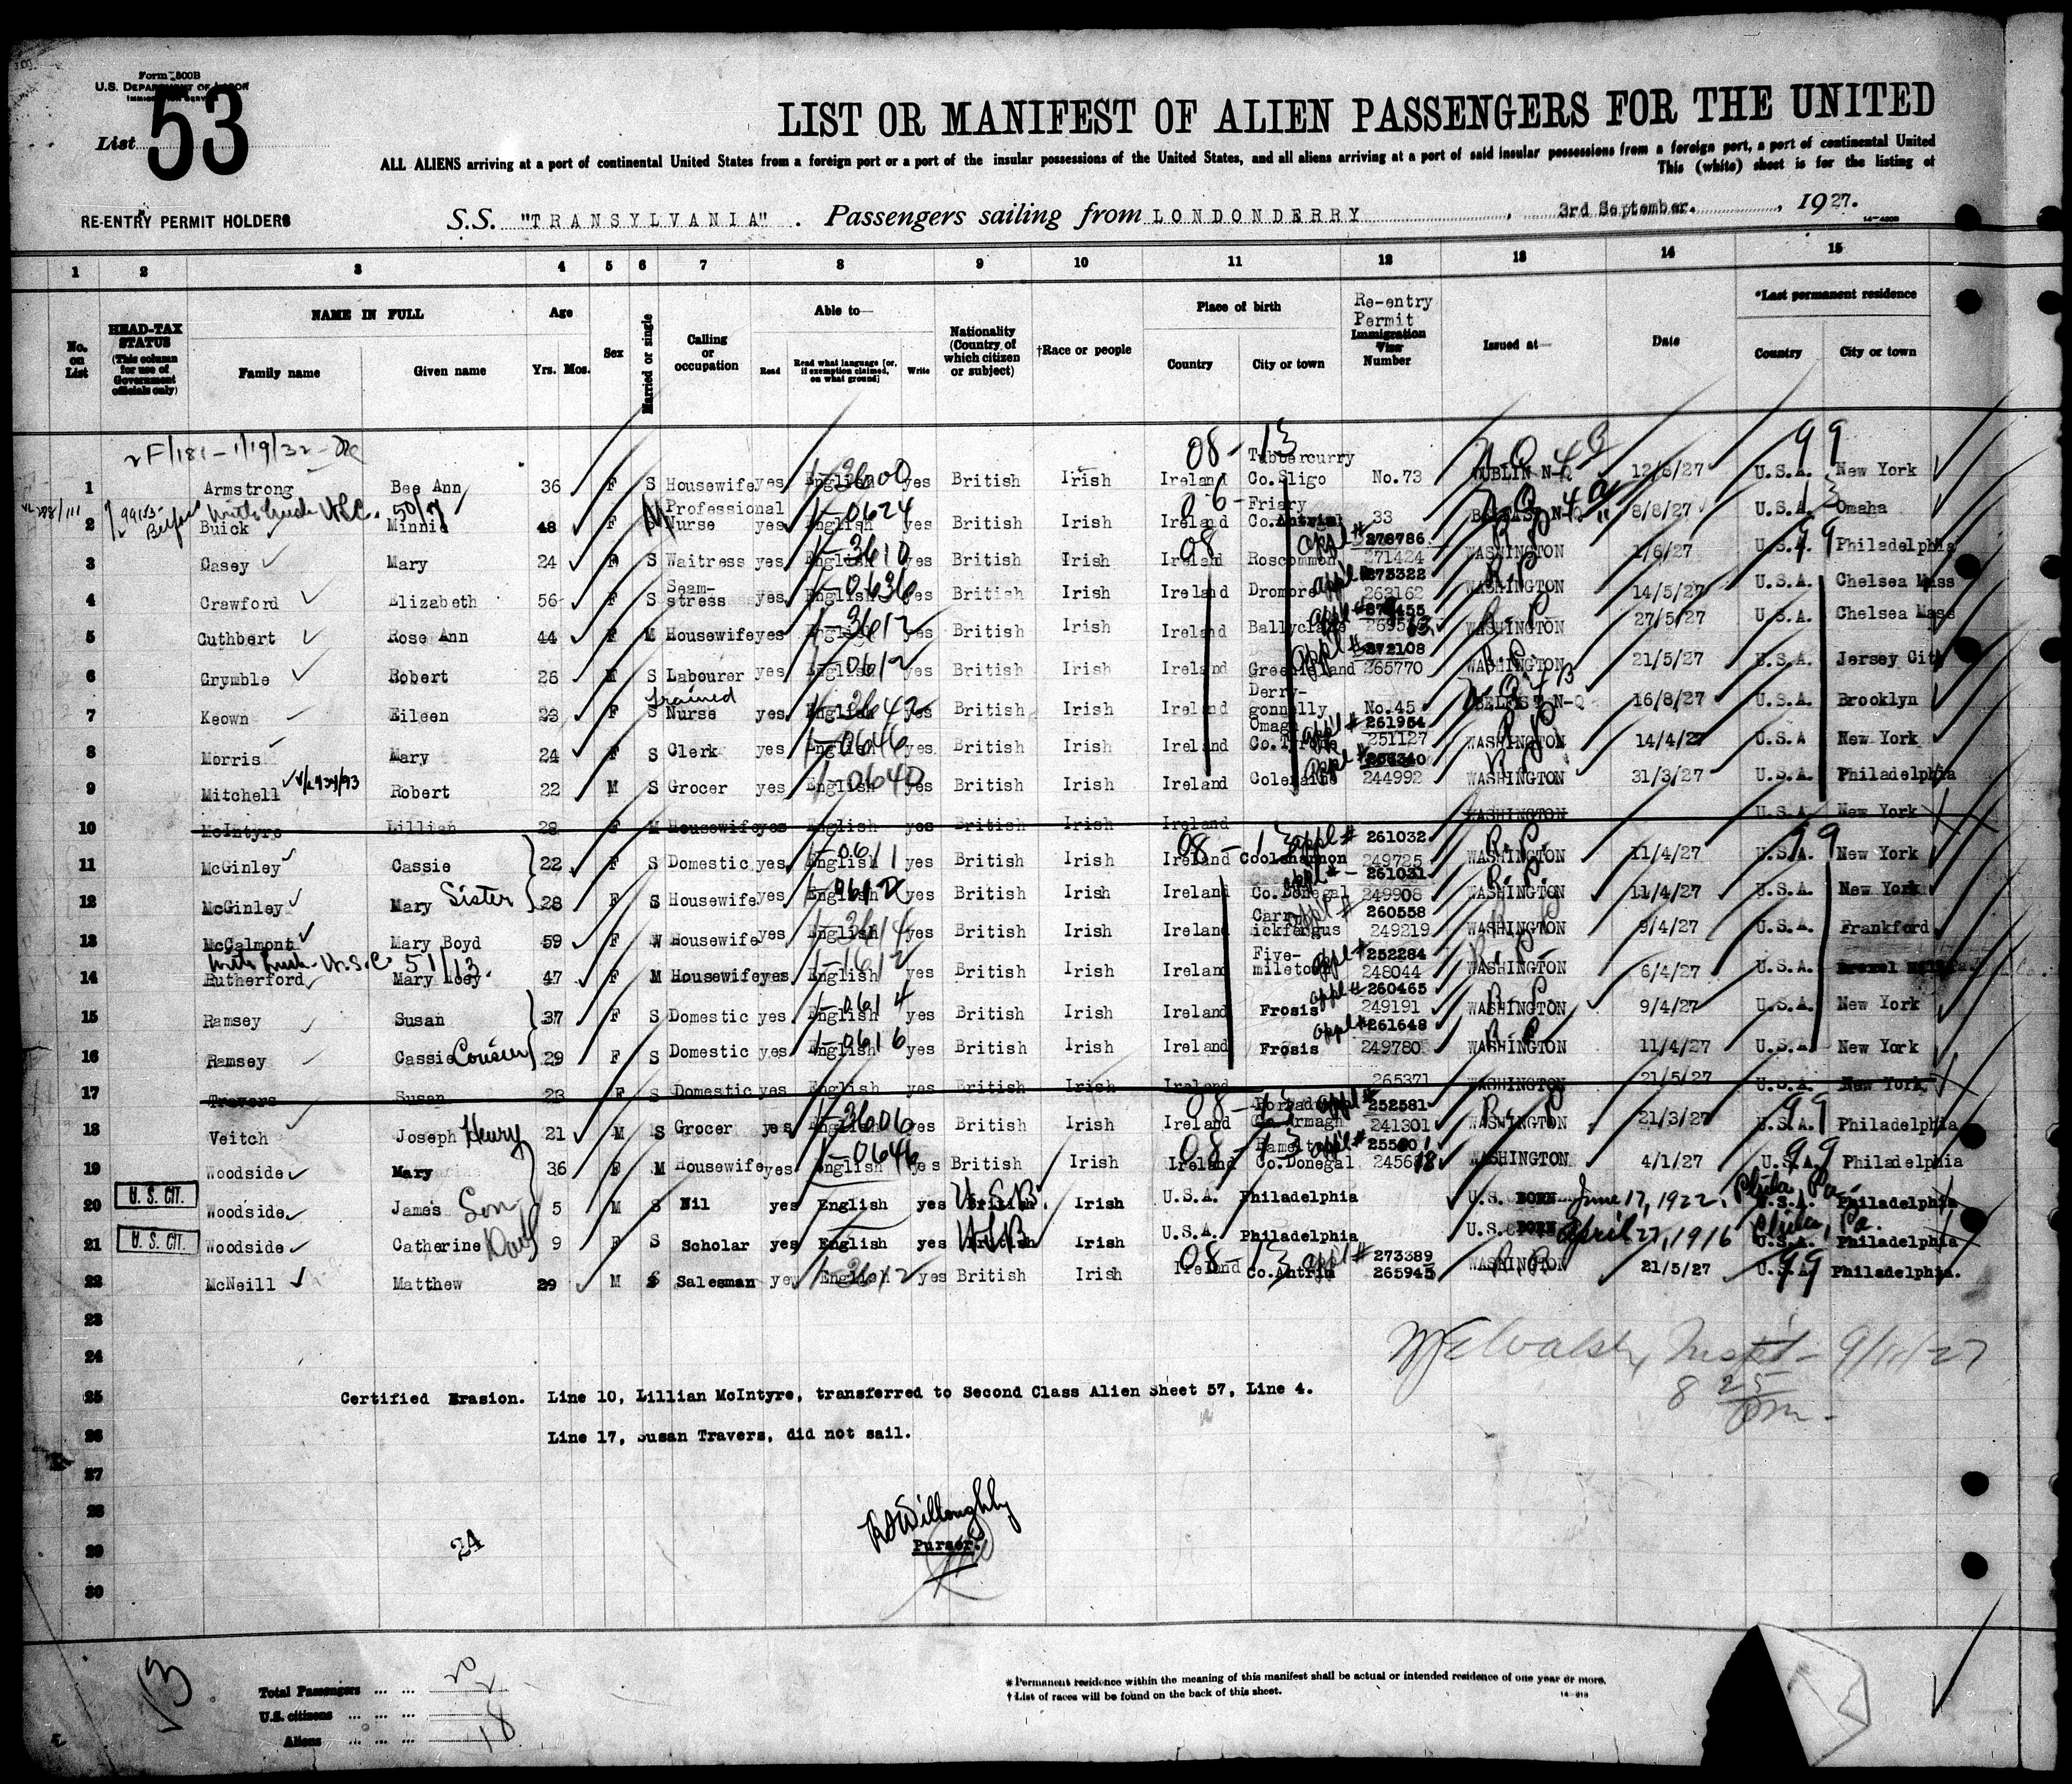 Form 500B
U.S. DEPARTMENT OF LABOR
List 53
LIST OR MANIFEST OF ALIEN PASSENGERS FOR THE UNITED
ALL ALIENS arriving at a port of continental United States from a foreign port or a port of the insular possessions of the United States, and all aliens arriving at a port of said insular possessions from a foreign port, a port of continental United
This (white) sheet is for the listing of
RE-ENTRY PERMIT HOLDERS
S.S. "TRANSYLVANIA". Passengers sailing from LONDONDERRY, 3rd September, 1927.
1 2 3 4 5 6 7 8 9 10 11 12 13 14 15
No. on List
HEAD-TAX STATUS (This column for use of Government officials only)
NAME IN FULL Family name Given name
Age Yrs. Mos.
Sex
Married or single
Calling or occupation
Able to— Read Read what language [or, if exemption claimed, on what ground] Write
Nationality (Country of which citizen or subject)
†Race or people
Place of birth Country City or town
Re-entry Permit Immigration Visa Number
Issued at—
Date
*Last permanent residence Country City or town
1 Armstrong Bee Ann 36 F S Housewife yes English 1-3600 yes British Irish Ireland 08-13 Tubbercurry Co.Sligo No.73 DUBLIN N-Q 12/8/27 U.S.A. 99 New York
2 Buick Minnie 48 F Professional Nurse yes English 1-0624 yes British Irish Ireland 06- Friary Co.Antrim 33 BELFAST N-Q 8/8/27 U.S.A. 13 Omaha
3 Casey Mary 24 F S Waitress yes English 1-3610 yes British Irish Ireland 08 Roscommon appl# 278786 271424 WASHINGTON 1/6/27 U.S.A. 99 Philadelphia
4 Crawford Elizabeth 56 F S Seam-stress yes English 1-0636 yes British Irish Ireland Dromore appl# 273322 263162 WASHINGTON R.P. 14/5/27 U.S.A. Chelsea Mass
5 Cuthbert Rose Ann 44 F M Housewife yes English 1-3612 yes British Irish Ireland Ballyclare appl# WASHINGTON R.P. 27/5/27 U.S.A. Chelsea Mass
6 Grymble Robert 26 M S Labourer yes English 1-0612 yes British Irish Ireland Greenisland appl# 272108 265770 WASHINGTON R.P. 21/5/27 U.S.A. Jersey City
7 Keown Eileen 23 F S trained Nurse yes English 1-3642 yes British Irish Ireland Derry-gonnelly No.45 BELFAST N-Q 16/8/27 U.S.A. Brooklyn
8 Morris Mary 24 F S Clerk yes English 1-0646 yes British Irish Ireland Omagh Co.Tyrone appl# 261954 251127 WASHINGTON R.P. 14/4/27 U.S.A New York
9 Mitchell Robert 22 M S Grocer yes English 1-0640 yes British Irish Ireland Coleraine appl# 244992 WASHINGTON R.P. 31/3/27 U.S.A. Philadelphia
10 McIntyre Lillian 28 F M Housewife yes English yes British Irish Ireland WASHINGTON U.S.A. New York
11 McGinley Cassie 22 F S Domestic yes English 1-0611 yes British Irish Ireland 08-13 appl# 261032 249725 WASHINGTON R.P. 11/4/27 U.S.A. 99 New York
12 McGinley Mary Sister 28 F S Housewife yes English yes British Irish Ireland Co.Donegal appl# 261031 249908 WASHINGTON R.P. 11/4/27 U.S.A. New York
13 McCalmont Mary Boyd 59 F W Housewife yes English 1-3614 yes British Irish Ireland Carr ickfergus appl# 260558 249219 WASHINGTON 9/4/27 U.S.A. Frankford
14 Rutherford Mary 51/13. 47 F M Housewife yes English 1-1612 yes British Irish Ireland Five-miletown appl# 252284 248044 WASHINGTON R.P. 6/4/27 U.S.A.
15 Ramsey Susan 37 F S Domestic yes English 1-0614 yes British Irish Ireland Frosis appl# 260465 249191 WASHINGTON R.P. 9/4/27 U.S.A. New York
16 Ramsey Cassie Cousin 29 F S Domestic yes English 1-0616 yes British Irish Ireland Frosis appl# 261648 249780 WASHINGTON R.P. 11/4/27 U.S.A. New York
17 Travers Susan 23 F S Domestic yes English yes British Irish Ireland 265371 WASHINGTON 21/5/27 U.S.A. New York
18 Veitch Joseph Henry 21 M S Grocer yes English 1-3606 yes British Irish Ireland 08-13 Co.Armagh appl# 252581 241301 WASHINGTON R.P. 21/3/27 U.S.A. 99 Philadelphia
19 Woodside Mary 36 F M Housewife yes English 1-0646 yes British Irish Ireland 08-13 Co.Donegal appl# WASHINGTON 4/1/27 U.S.A. 99 Philadelphia
20 U. S. CIT. Woodside James Son 5 M S Nil yes English yes British U.S.B. Irish U.S.A. Philadelphia U.S. BORN June 17, 1922, Phila Pa. U.S.A. Philadelphia
21 U. S. CIT. Woodside Catherine Dau 9 F S Scholar yes English yes British USB Irish U.S.A. Philadelphia U.S. BORN April 27, 1916 Phila, Pa. U.S.A. Philadelphia
22 McNeill Matthew 29 M S Salesman yes English 3612 yes British Irish Ireland 08-13 Co.Antrim appl# 273389 265945 WASHINGTON R.P. 21/5/27 U.S.A 99 Philadelphia.
23
24
25 Certified Erasion. Line 10, Lillian McIntyre, transferred to Second Class Alien Sheet 57, Line 4.
26 Line 17, Susan Travers, did not sail.
27
28
29 24 Willoughby Purser.
30
13
Total Passengers ... ... 20
U.S. citizens ... ... 2
Aliens ... ... 18
* Permanent residence within the meaning of this manifest shall be actual or intended residence of one year or more.
† List of races will be found on the back of this sheet.